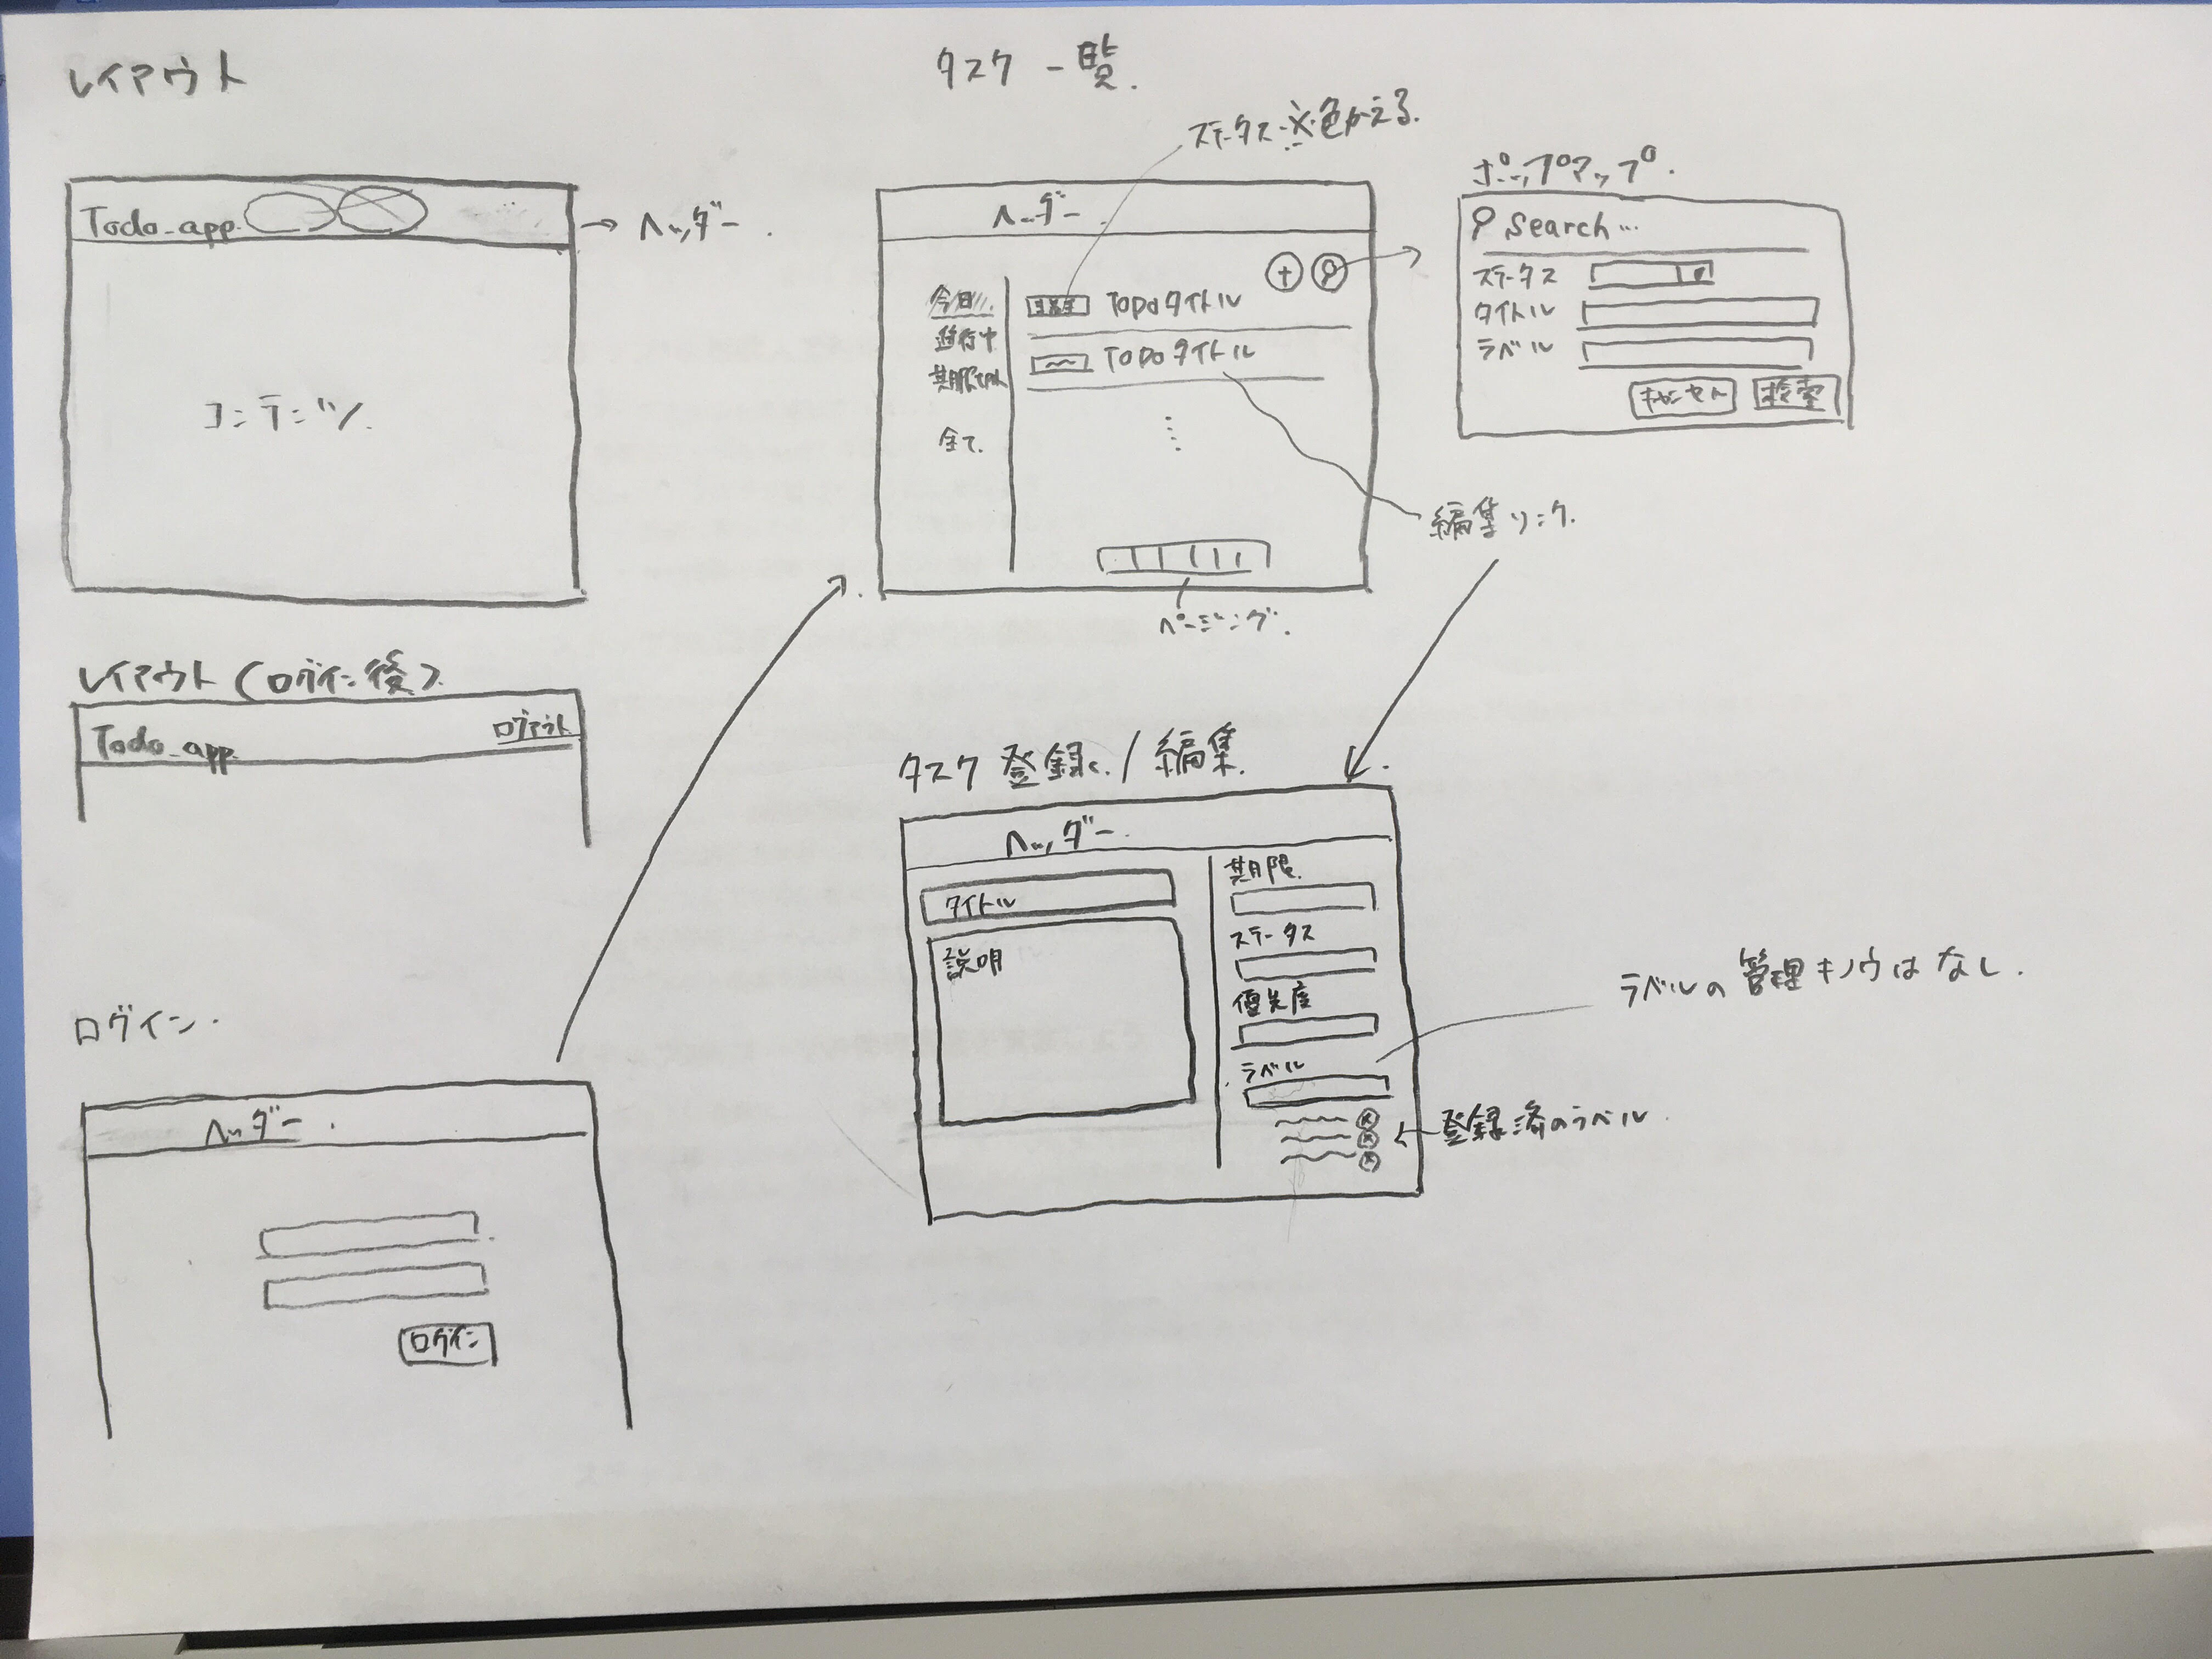 レイアウト
Todo_app.
→ ヘッダー.
コンテンツ.
レイアウト(ログイン後)
Todo_app.
ログアウト
ログイン.
ヘッダー.
ログイン
タスク一覧.
ステータス ※色かえる.
ヘッダー.
今日
進行中
全て.
TODOタイトル
TODOタイトル
編集リンク.
ページング.
ポップアップ.
Search...
ステータス
タイトル
ラベル
キャンセル
検索
タスク登録/編集.
ヘッダー.
タイトル
説明
期限.
ステータス
優先度
ラベル
ラベルの管理キノウはなし.
←登録済のラベル